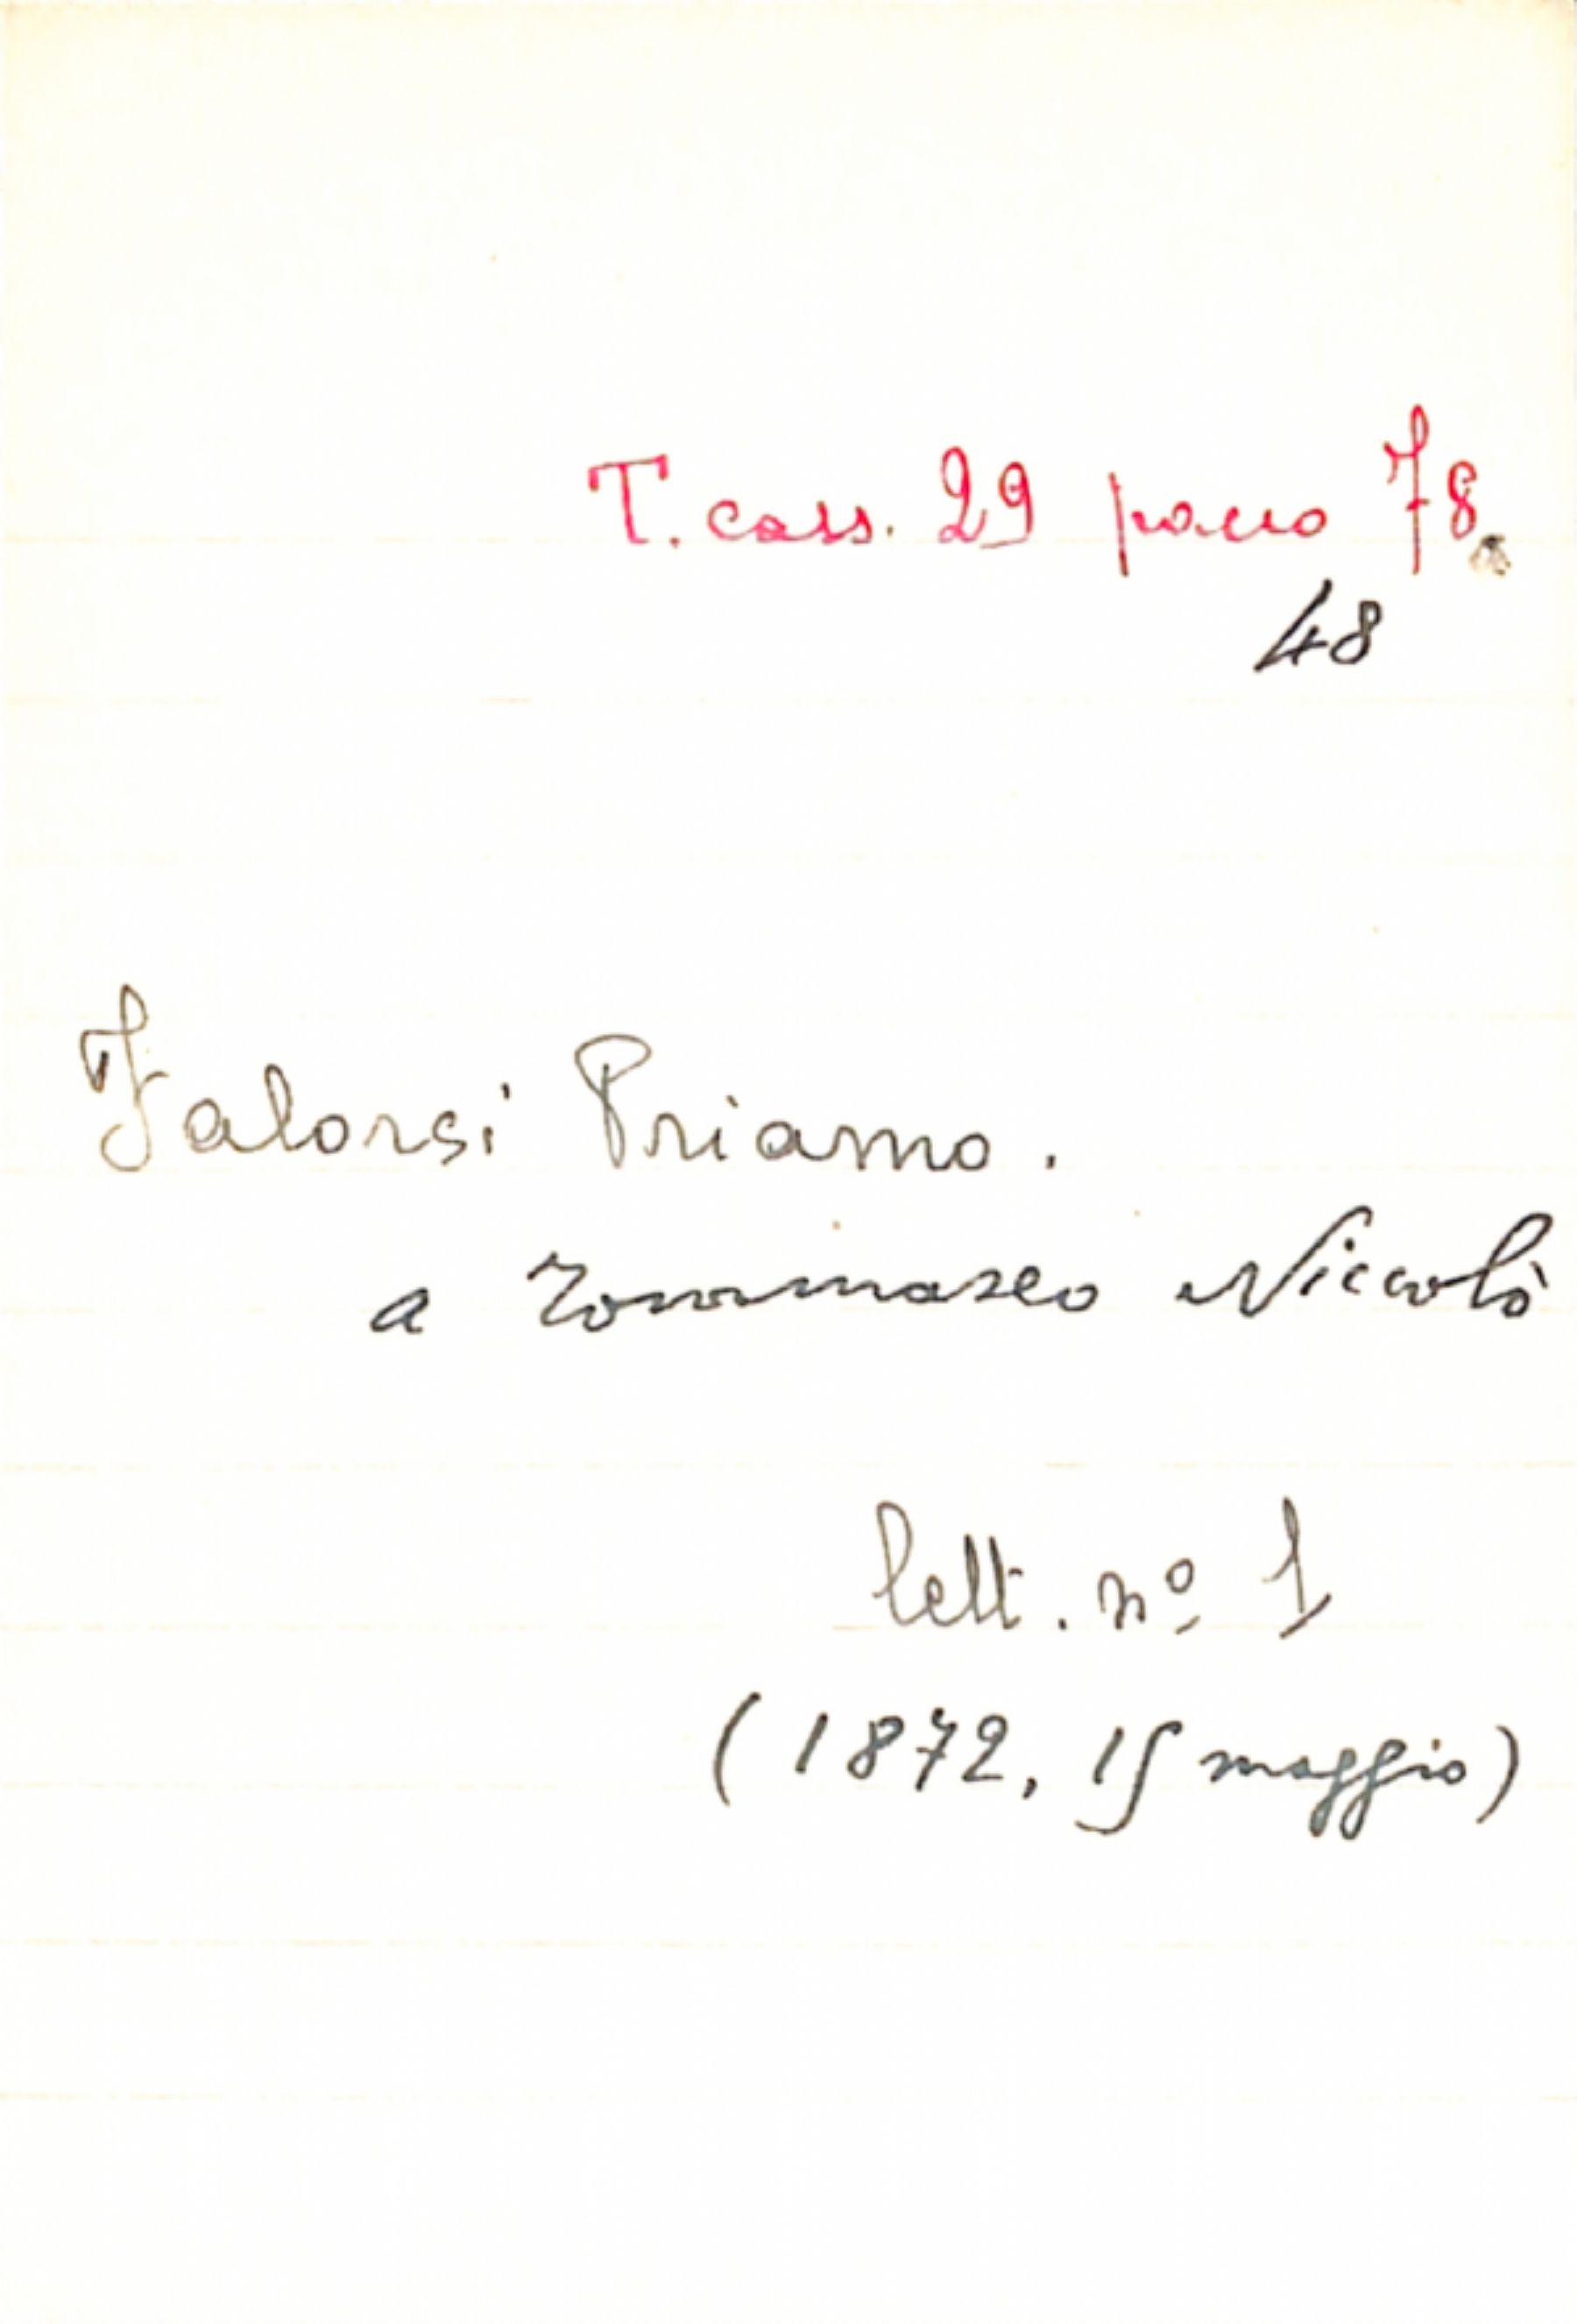 T. cass. 29 pacco 78.
48
Falorsi Priamo.
a Tommaseo Niccolò
lett. nº 1
(1872, 15 maggio)